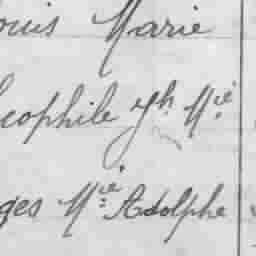 ouis Marie
éophile Jh. Mie
ges Mie Adolphe